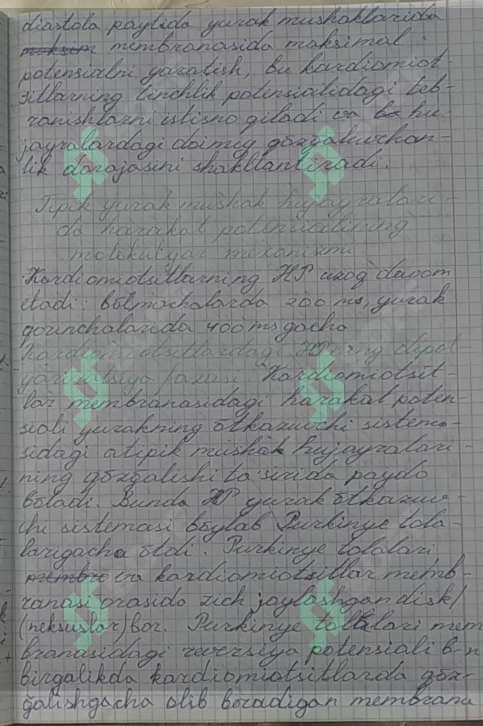 diastola paytida yurak mushaklarida
membranasida maksimal
potensialni yaratish, bu kardiomiot-
sitlarning tinchlik potensialidagi teb-
ranishlarni istisno qiladi va hu-
jayralardagi doimiy gõzgaluvchan-
lik darajasini shakllantiradi.
Tipik yurak mushak hujayralari-
da harakat potensialining
molekulyar mexanizmi
Kardiomiotsitlarning HP uzoq davom
etadi: bõlmachalarda 200 ms, yurak
qorinchalarida 400 ms gacha
Kardiomiotsitlardagi HP ning depol
yarizatsiya fazasi. Kardiomiotsit-
lar membranasidagi harakat poten
siali yurakning õtkazuvchi sistema-
sidagi atipik mushak hujayralari-
ning qõzgalishi ta'sirida paydo
bõladi. Bunda HP yurak õtkazuv-
chi sistemasi bõylab Purkinye tola-
larigacha õtdi. Purkinye tolalari
va kardiomiotsitlar memb-
ranasi orasida zich joylashgan disk/
(neksuslar) bor. Purkinye tolalari mem
branasidagi reversiya potensiali b-n
birgalikda kardiomiotsitlarda qõz-
ğalishgacha olib boradigan membrana